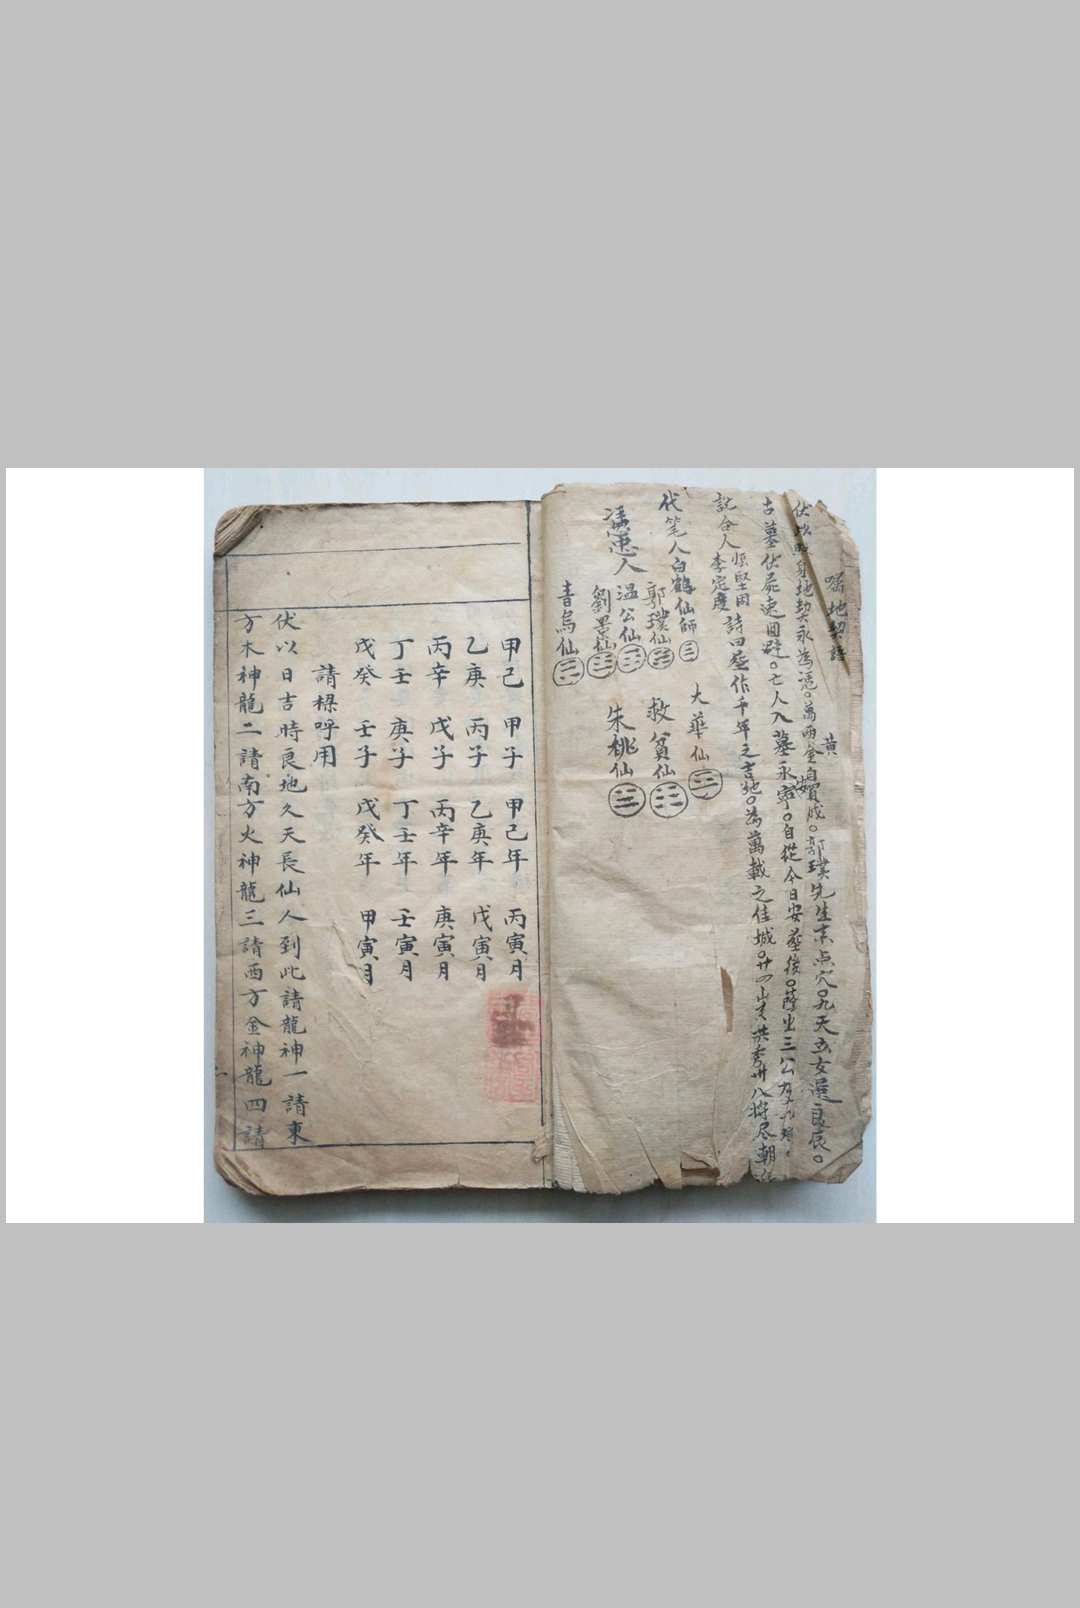 地契語
伏以 地契永為憑。萬兩黃金自買成。郭璞先生來点穴。九天玄女選良辰。
古墓伏屍速回避。亡人入墓永安寧。自從今日安葬後。蔭出三公
說合人 張堅固 李定度 詩曰 作千年之吉地。為萬載之佳城。廿四山 拱秀廿八將尽朝
代笔人白鶴仙師
大華仙
郭璞仙
救貧仙
憑 人
温公仙
朱桃仙
劉景仙
青烏仙
甲己 甲子 甲己年 丙寅月
乙庚 丙子 乙庚年 戊寅月
丙辛 戊子 丙辛年 庚寅月
丁壬 庚子 丁壬年 壬寅月
戊癸 壬子 戊癸年 甲寅月
請樑呼用
伏以日吉時良地久天長仙人到此請龍神一請東
方木神龍二請南方火神龍三請西方金神龍四請